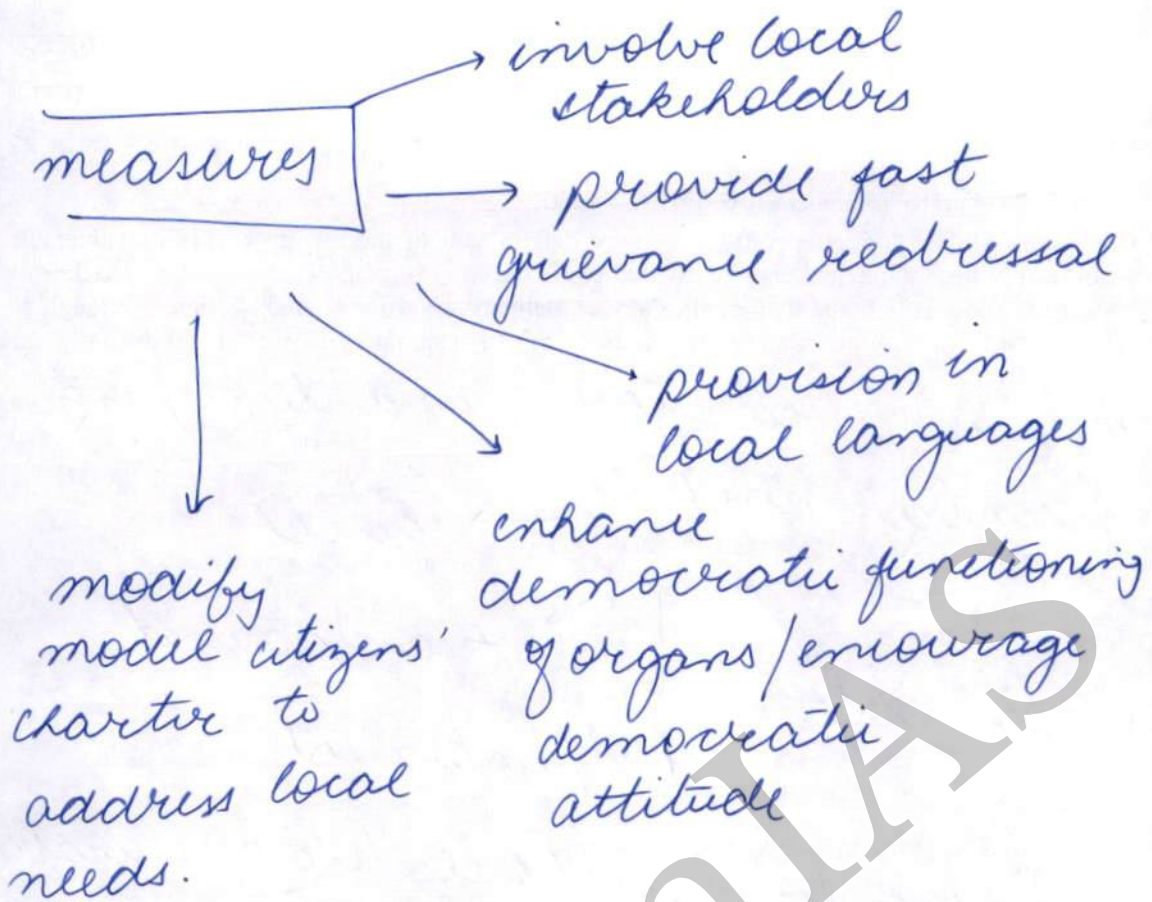 involve local
stakeholders
measures
provide fast
grievance redressal
provision in
local languages
enhance
democratic functioning
of organs / encourage
democratic
attitude
modify
model citizens'
charter to
address local
needs.
nIAS